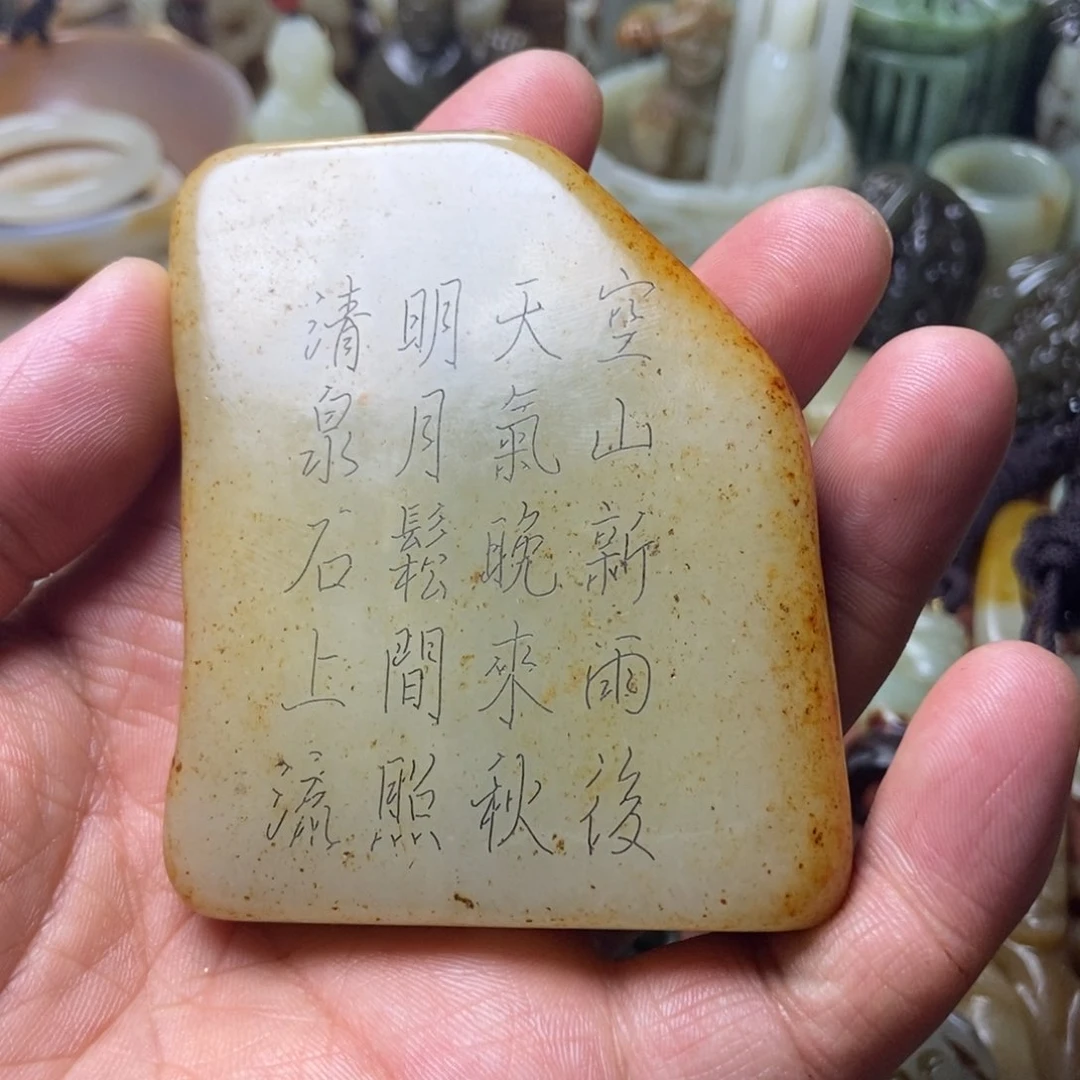 空山新雨後
天氣晚來秋
明月鬆間照
清泉石上流